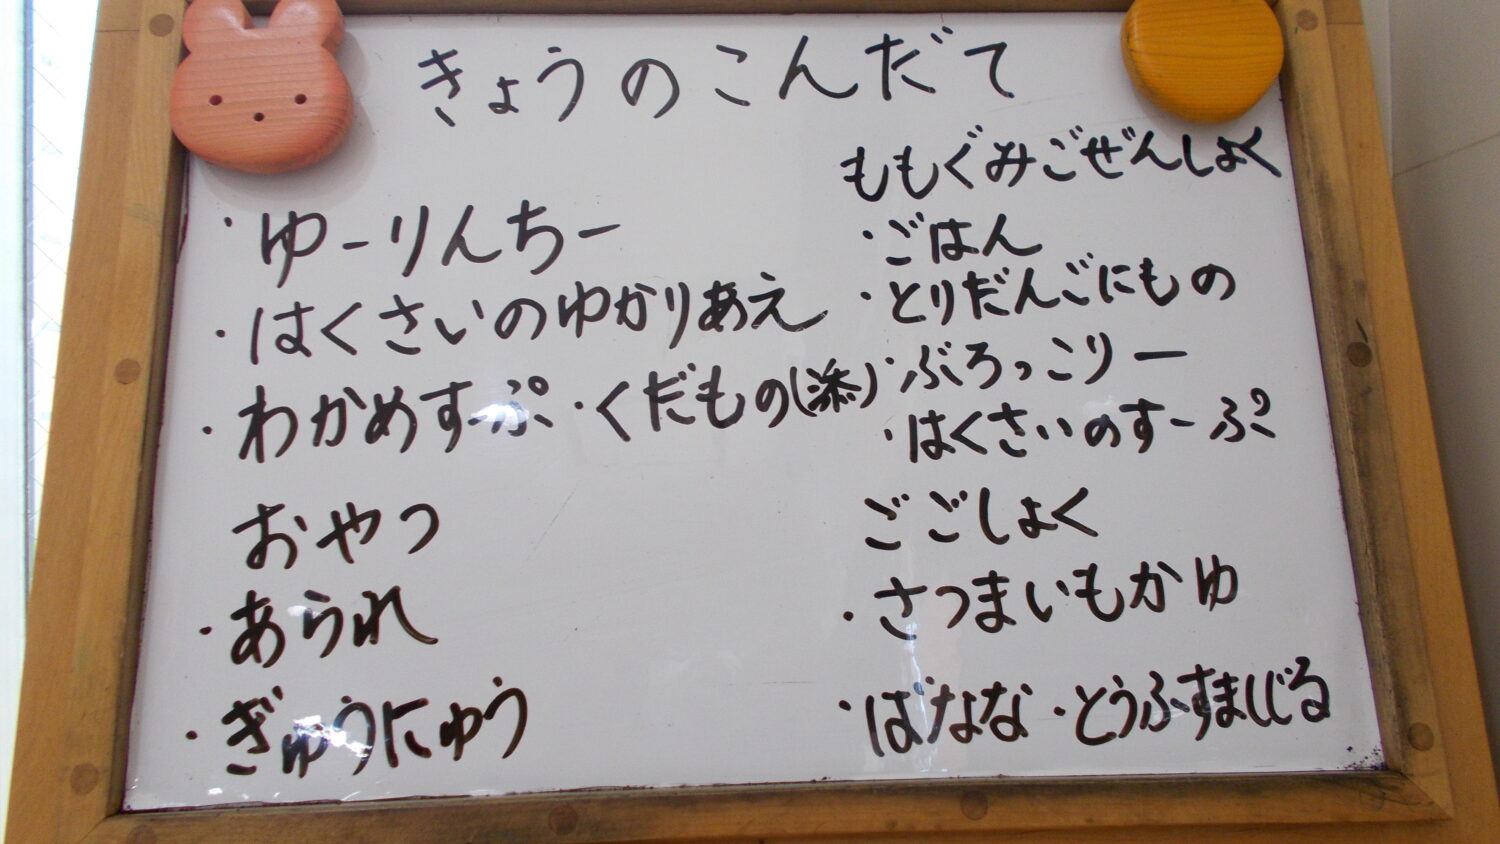 きょうのこんだて
・ゆーりんちー
・はくさいのゆかりあえ
・わかめすーぷ・くだもの(添)
おやつ
・あられ
・ぎゅうにゅう
ももぐみごぜんしょく
・ごはん
・とりだんごにもの
・ぶろっこりー
・はくさいのすーぷ
ごごしょく
・さつまいもかゆ
・ばなな・とうふすましじる